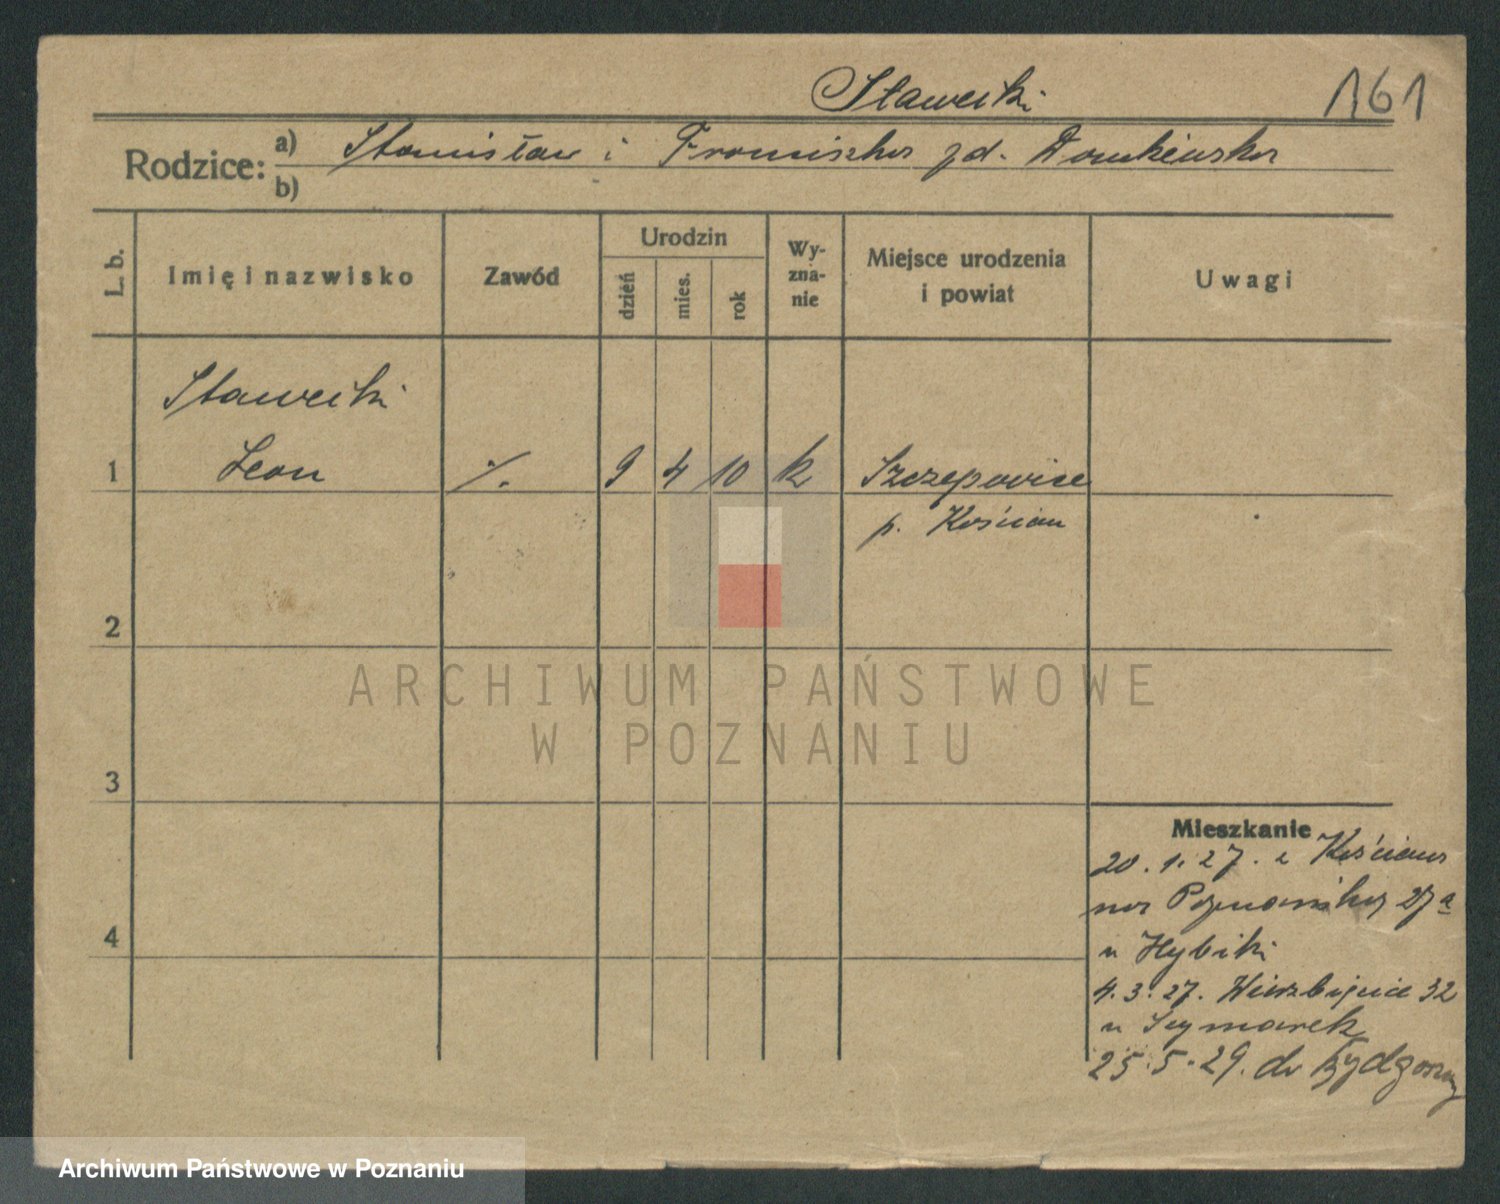 Sławecki 161
Rodzice: a) Stanisław i Franciszka zd.
b)
L. b.
Imię i nazwisko
Zawód
Urodzin
dzień
mies.
rok
Wy-
zna-
nie
Miejsce urodzenia
i powiat
Uwagi
Sławecki
1 Leon ·/. 9 4 10 k Szczepowice
p. Kościan
2
3
4
Mieszkanie
20.1.27. z Kościana
na Poznańską 27a
u Hybiki
4.3.27. Wierzbięcice 32
u Szymarek
25.5.29. do Bydgoszczy
ARCHIWUM PAŃSTWOWE
W POZNANIU
Archiwum Państwowe w Poznaniu